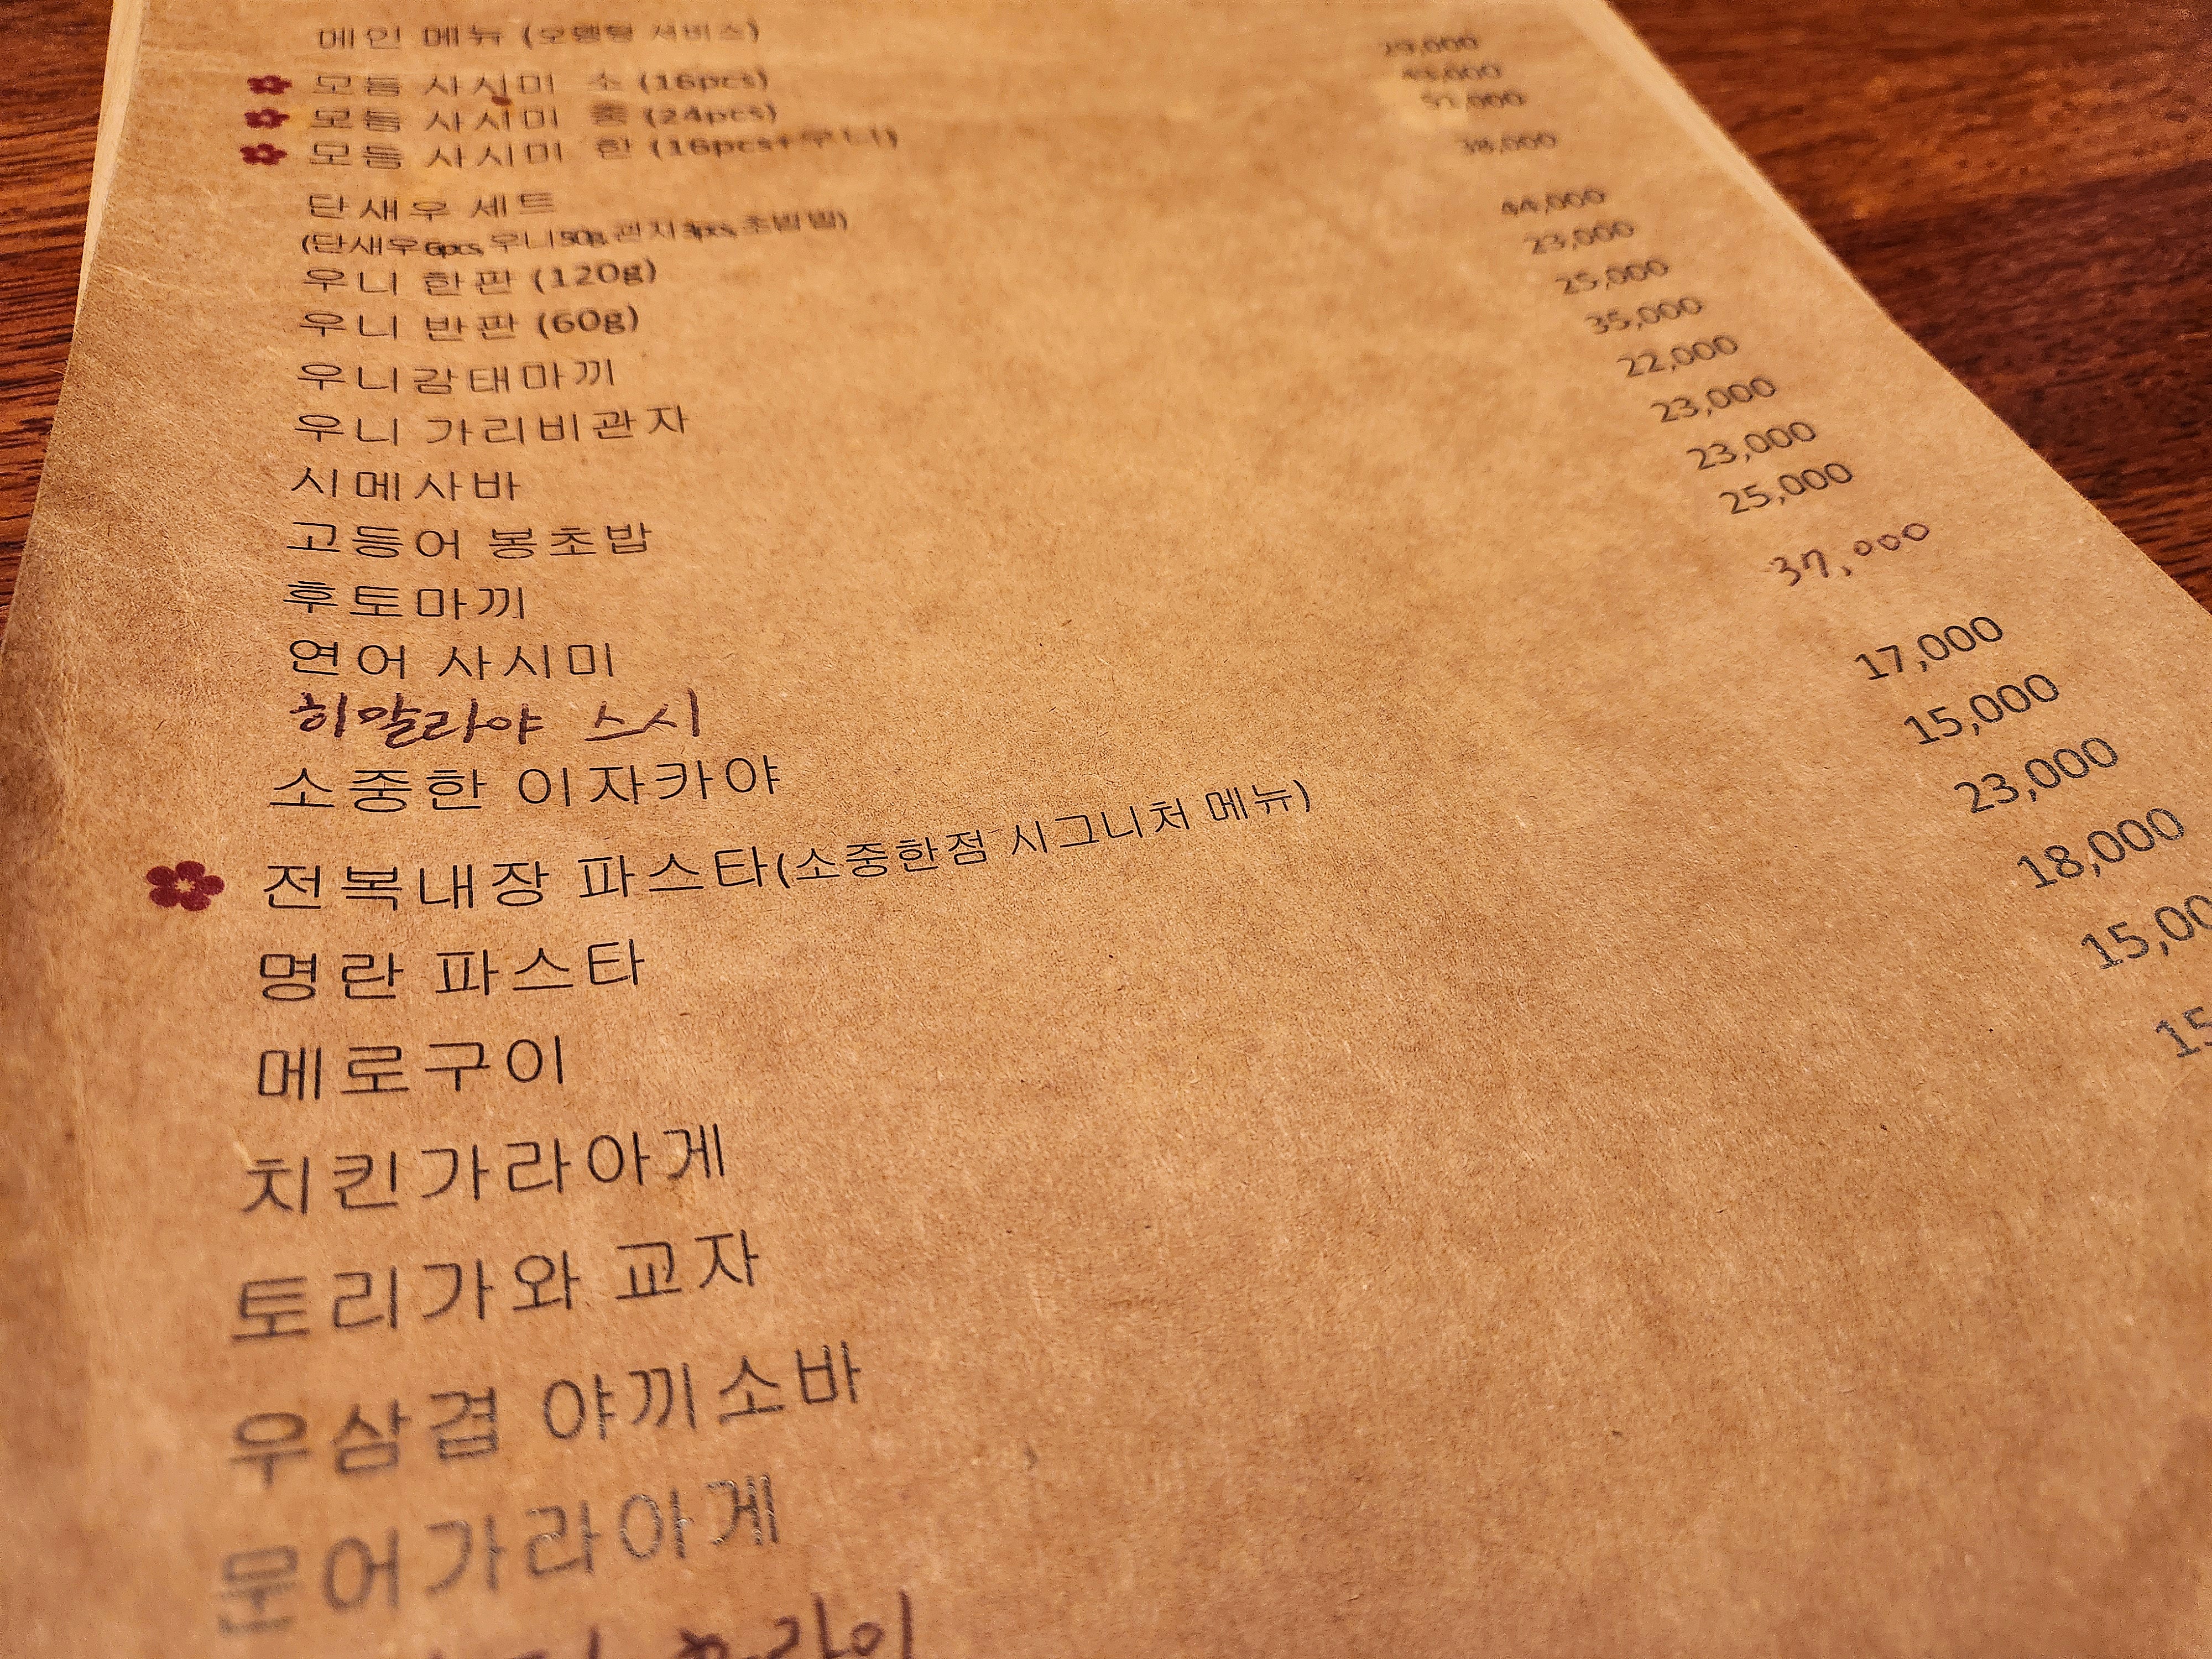 메인 메뉴 (오뎅탕 서비스)
모듬 사시미 소 (16pcs) 29,000
모듬 사시미 중 (24pcs)
모듬 사시미 한 (16pcs+우니)
단새우 세트 38,000
(단새우6pcs, 우니50g, 관자3pcs, 초밥밥)
우니 한판 (120g) 44,000
우니 반판 (60g) 23,000
우니감태마끼 25,000
우니 가리비관자 35,000
시메사바 22,000
고등어 봉초밥 23,000
후토마끼 23,000
연어 사시미 25,000
히말라야 스시 37,000
소중한 이자카야
전복내장 파스타(소중한점 시그니처 메뉴) 17,000
명란 파스타 15,000
메로구이 23,000
치킨가라아게 18,000
토리가와 교자 15,00
우삼겹 야끼소바 15
문어가라아게